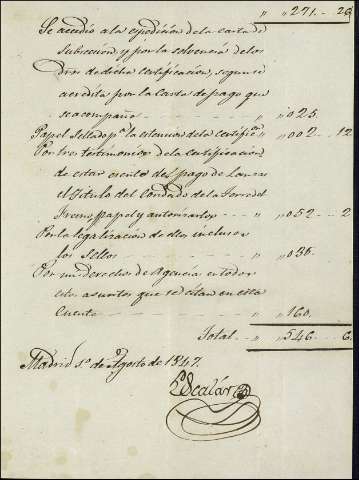 " " 271.. 26
Se accedio a la expedicion de la carta de
Subcesion, y por la solvencia de los
dros de dicha certificacion, segun se
acredita por la Carta de pago que
se acompaña - - - " " 025.
Papel Sellado pa. la estension de la certificon " 002 . 12
Por tres testimonios de la certificacion
de estar esento del pago de Lanzas
el Titulo del Condado de la Torre del
Fresno, papel y autorizarlos - - - " " 052 .. 2
Por la legalizacion de ellos inclusos
los Sellos - - - " 036.
Por mis derechos de Agencia en todos
estos asuntos que se citan en esta
Cuenta - - - " " 160.
Total . . " 546 .. 6
Madrid 1o. de Agosto de 1847.
Escalár